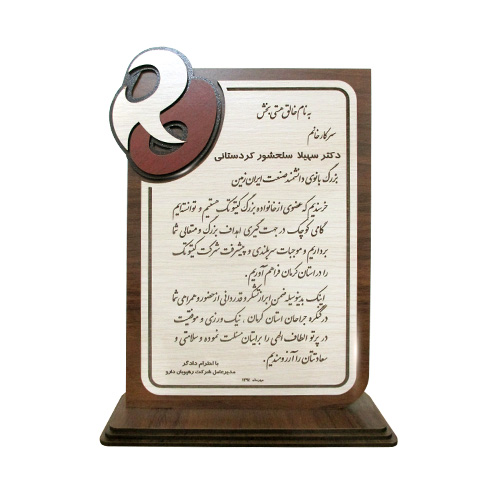 به نام خالق هستی بخش
سرکار خانم
دکتر سهیلا سلحشور کردستانی
بزرگ بانوی دانشمند صنعت ایران زمین
خرسندیم که عضوی از خانواده بزرگ کیتوتک هستیم و توانستایم
گامی کوچک در جهت گیری اهداف بزرگ و متعالی شما
برداریم و موجبات سربلندی و پیشرفت شرکت کیتوتک
را در استان کرمان فراهم آوریم.
اینک بدینوسیله ضمن ابراز تشکر و قدردانی از حضور و همراهی شما
در کنگره جراحان استان کرمان ، نیک ورزی و موفقیت
در پرتو الطاف الهی را برایتان مسئلت نموده و سلامتی و
سعادتتان را آرزومندیم.
با احترام دادگر
مدیرعامل شرکت رهپویان دارو